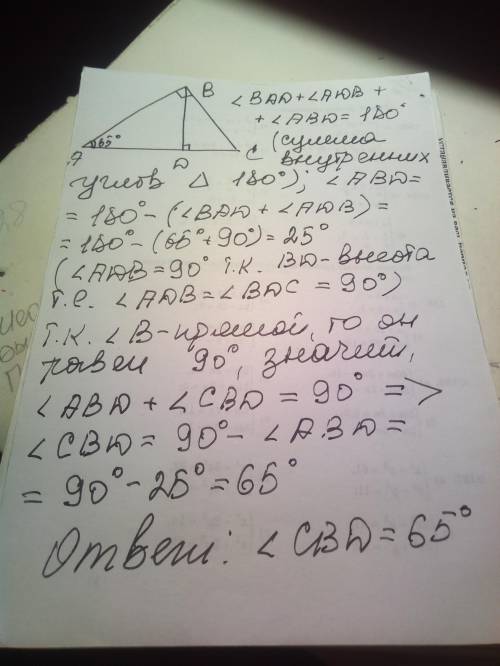 B
∠BAD+∠ADB+
65°
+∠ABD=180°
A
D
C
(сумма
внутренних
углов Δ 180°); ∠ABD=
=180°-(∠BAD+∠ADB)=
=180°-(65°+90°)=25°
(∠ADB=90° т.к. BD-высота
т.е. ∠ADB=∠BDC=90°)
т.к. ∠B-прямой, то он
равен 90°, значит,
∠ABD+∠CBD=90°=>
∠CBD=90°-∠ABD=
=90°-25°=65°
Ответ: ∠CBD=65°